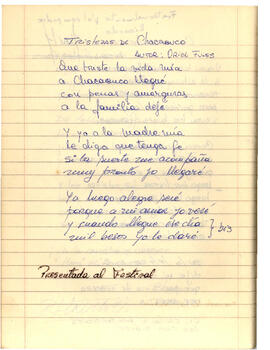 TRISTEZAS DE CHACABUCO
AUTOR: ORIOL FUNES
Que triste la vida mía
a Chacabuco llegué
con penas y amarguras
a la familia dejé
Y ya a la madre mía
le digo que tenga fe
si la suerte me acompaña
muy pronto yo llegaré
Ya luego alegre seré
porque a mi amor yo veré
y cuando llegue ese día
mil besos yo le daré
} bis
Presentada al Festival